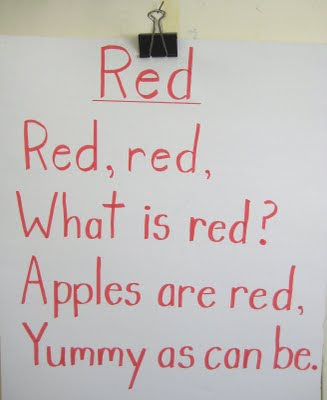 Red
Red, red,
What is red?
Apples are red,
Yummy as can be.